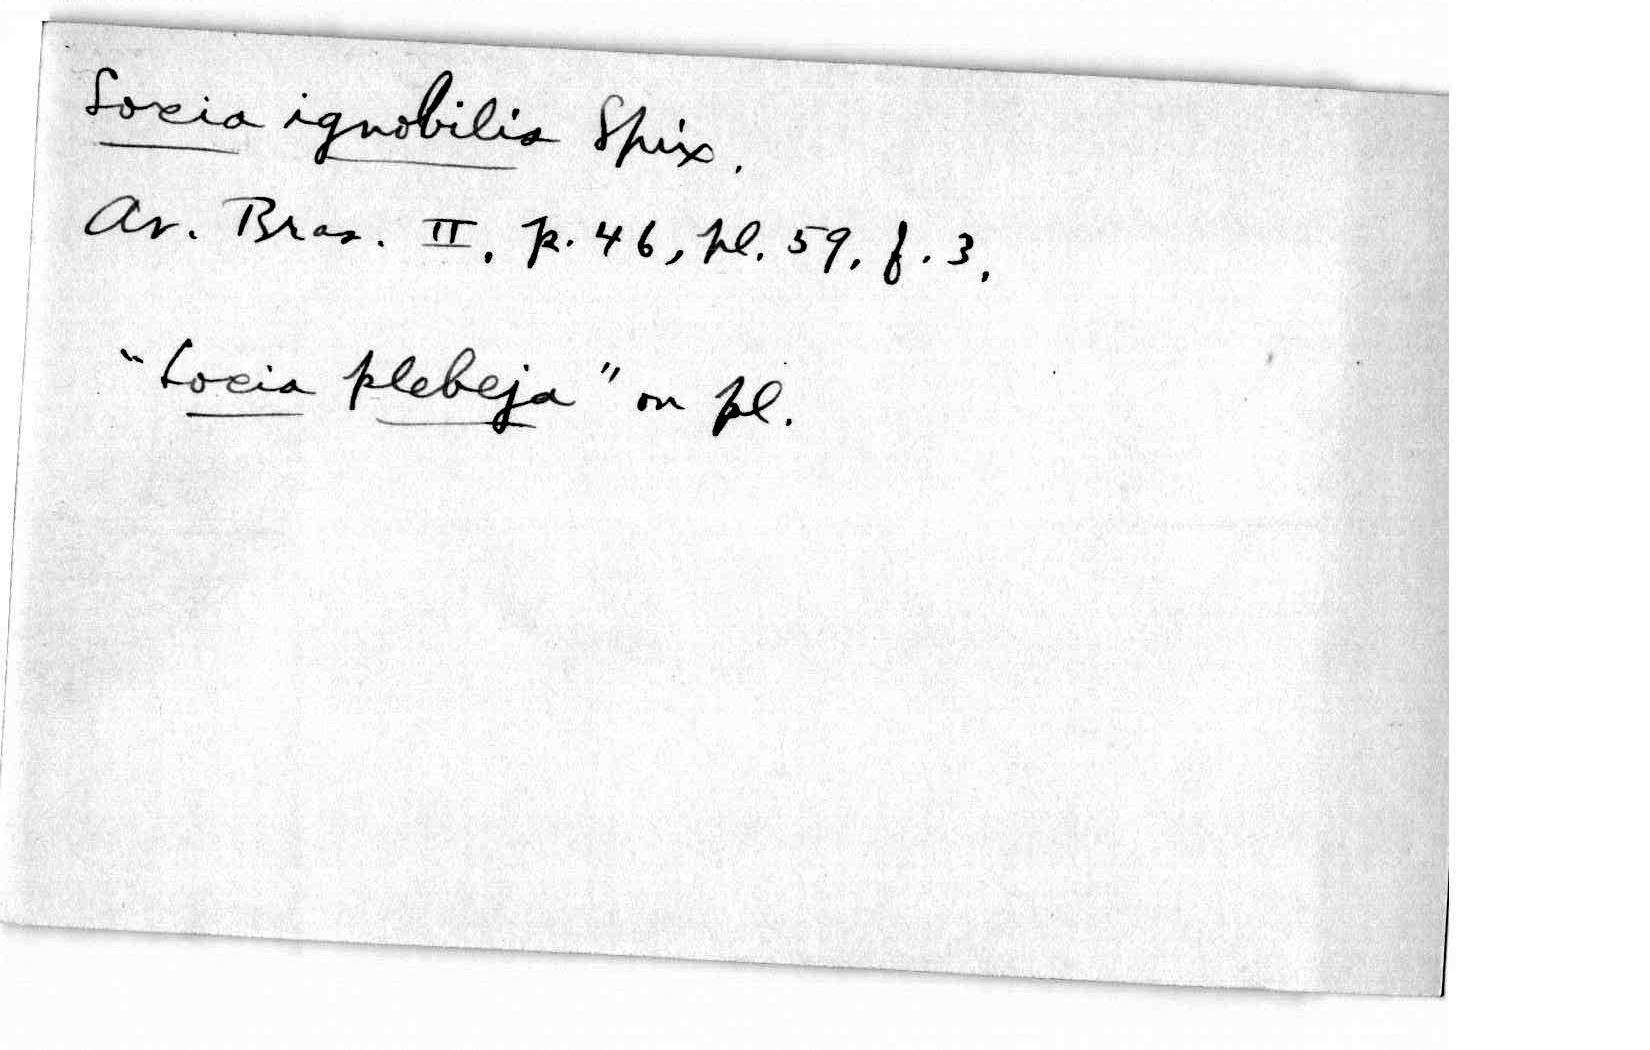 Loxia ignobilis Spix.
Av. Bras. II, p. 46, pl. 59, f. 3.
"Loxia plebeja" on pl.